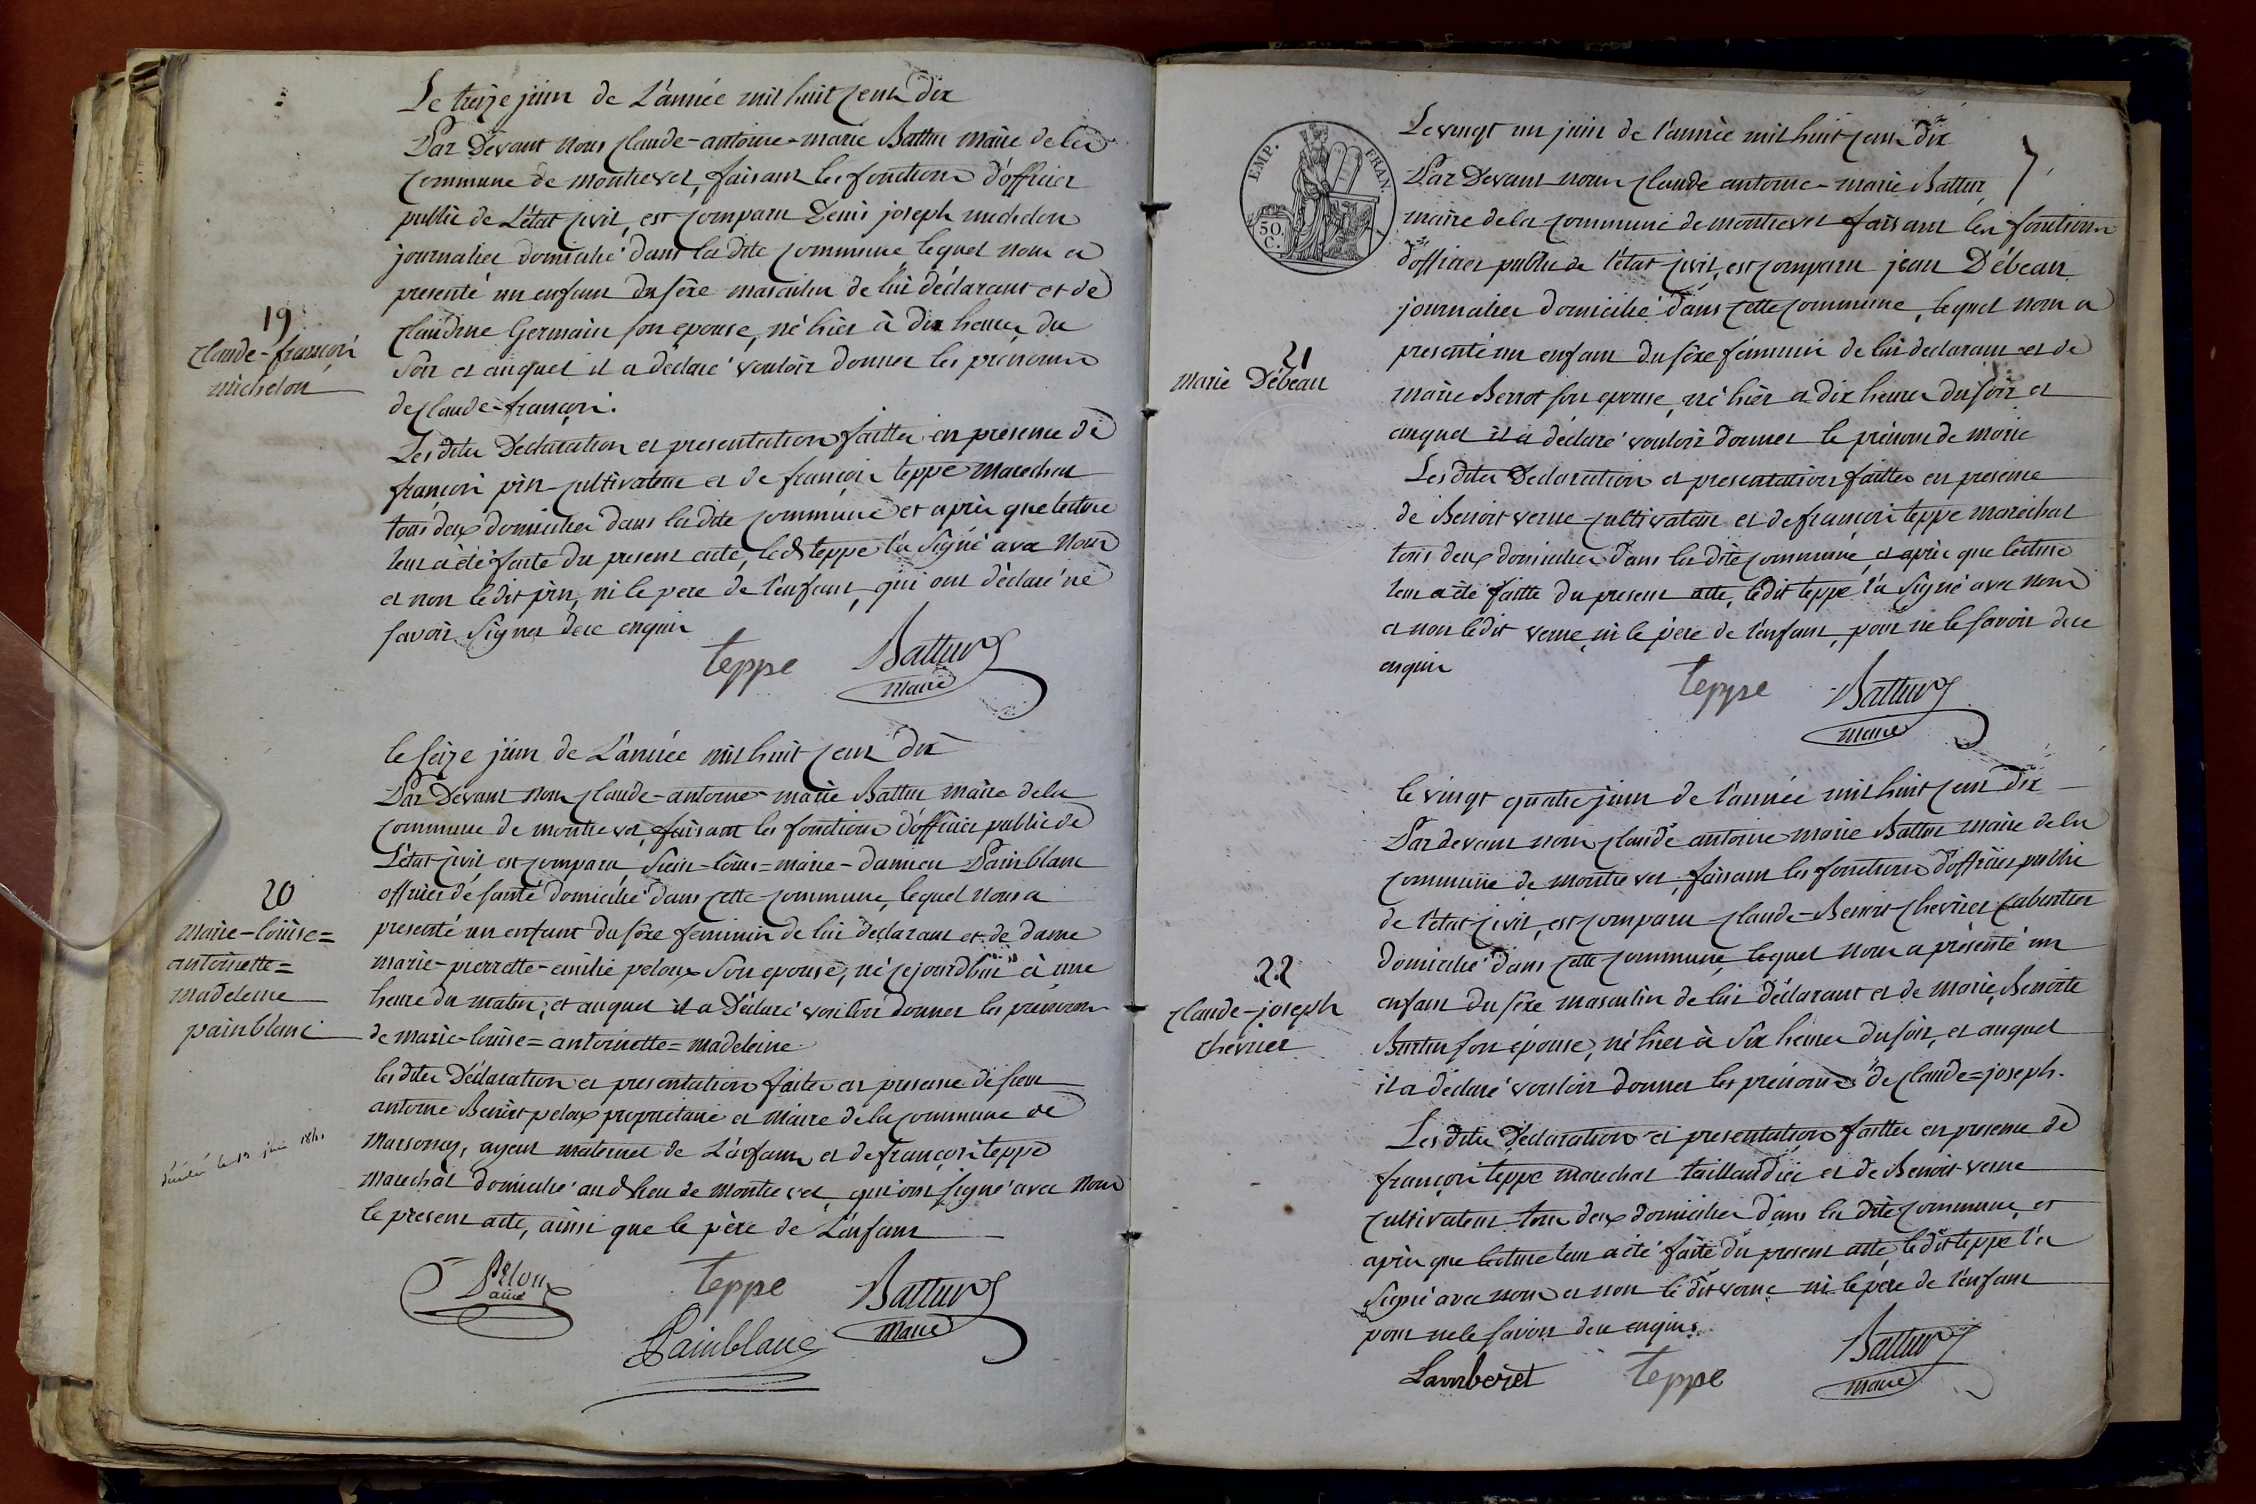 Le treize juin de L'année mil huit cent dix
Par Devant nous Claude-antoine-marie Battur Maire de la
commune de montrevel, faisant les fonctions d'officier
public de L'état civil, est comparu Denis joseph michelon
journalier domicilié dans la dite commune lequel nous a
presenté un enfant du sèxe masculin de lui déclarant et de
Claudine Germain son epouse, né hier à dix heures du
Soir et auquel il a declaré vouloir donner les prénoms
de Claude-françois.
Les dites Déclaration et presentation faittes en présence de
françois pin cultivateur et de françois teppe Marechal
tous deux domiciliés dans la dite commune et après que lecture
leur a été faite du present acte, led teppe l'a Signé avec Nous
et non le dit pin, ni le pere de l'enfant, qui ont déclaré ne
savoir Signer de ce enquis
teppe Battur
Maire
19
Claude-françois
michelon
le seize juin de L'année mil huit cent dix
Par Devant nous Claude-antoine-marie Battur Maire de la
commune de montrevel, faisant les fonctions d'officier public de
L'état civil, est comparu Sieur-loüis=marie-damien Painblanc
officier de santé domicilié dans cette commune, lequel nous a
presenté un enfant du sèxe feminin de lui déclarant et de dame
marie-pierrette-emilie peloux Son epouse, né ce jourd'hui à une
heure du matin, et auquel il a Déclaré vouloir donner les prénoms
de marie-louise=antoinette=madeleine
les dites Déclaration et presentation faites en presence de sieur
antoine Benoit peloux proprietaire et Maire de la commune de
Marsonay, ayeul maternel de L'enfant et de françois teppe
Marechal domicilié aud lieu de Montrevel, qui ont signé avec Nous
le present acte, ainsi que le père de L'enfant
Peloux
ainé
teppe Battur
Maire
Painblanc
20
Marie-loüise=
antoinette=
madeleine
painblanc
le
Le vingt un juin de l'année mil huit cent dix
Par Devant nous Claude antoine-marie Battur,
maire de la commune de montrevel faisant les fonctions
d'officier public de l'état civil, est comparu jean Débeau
journalier domicilié dans cette commune, lequel nous a
presenté un enfant du sèxe féminin de lui declarant et de
marie Berrot son epouse, né hier a dix heures du soir et
auquel il a déclaré vouloir donner le prénom de marie
Les dites Declaration et presentation faittes en presence
de Benoit verne cultivateur et de françois teppe marechal
tous deux domiciliés dans la dite commune, et après que lecture
leur a été faitte du present acte, le dit teppe l'a Signé avec nous
et non le dit verne, ni le père de l'enfant, pour ne le savoir de ce
enquis
teppe Battur
Maire
EMP. FRAN.
50.
C.
21
Marie Débeau
le vingt quatre juin de l'année mil huit cent dix
Par devant nous Claude antoine marie Battur Maire de la
commune de montrevel, faisant les fonctions d'officier public
de l'état civil, est comparu Claude-Benoit Chevrier Cabaretier
domicilié dans cette commune, lequel nous a présenté un
enfant du sèxe masculin de lui déclarant et de marie Benoite
Burtin son épouse, né hier à Six heures du soir, et auquel
il a déclaré vouloir donner les prénoms de Claude=joseph.
Les dites Déclaration et presentation faittes en presence de
françois teppe marechal taillandier et de Benoit verne
cultivateur tous deux domiciliés dans la dite commune, et
après que lecture leur a été faite du present acte, le dit teppe l'a
Signé avec nous et non le dit verne ni le père de l'enfant
pour ne le savoir de ce enquis.
Lamberet teppe Battur
Maire
22
Claude-joseph
Chevrier